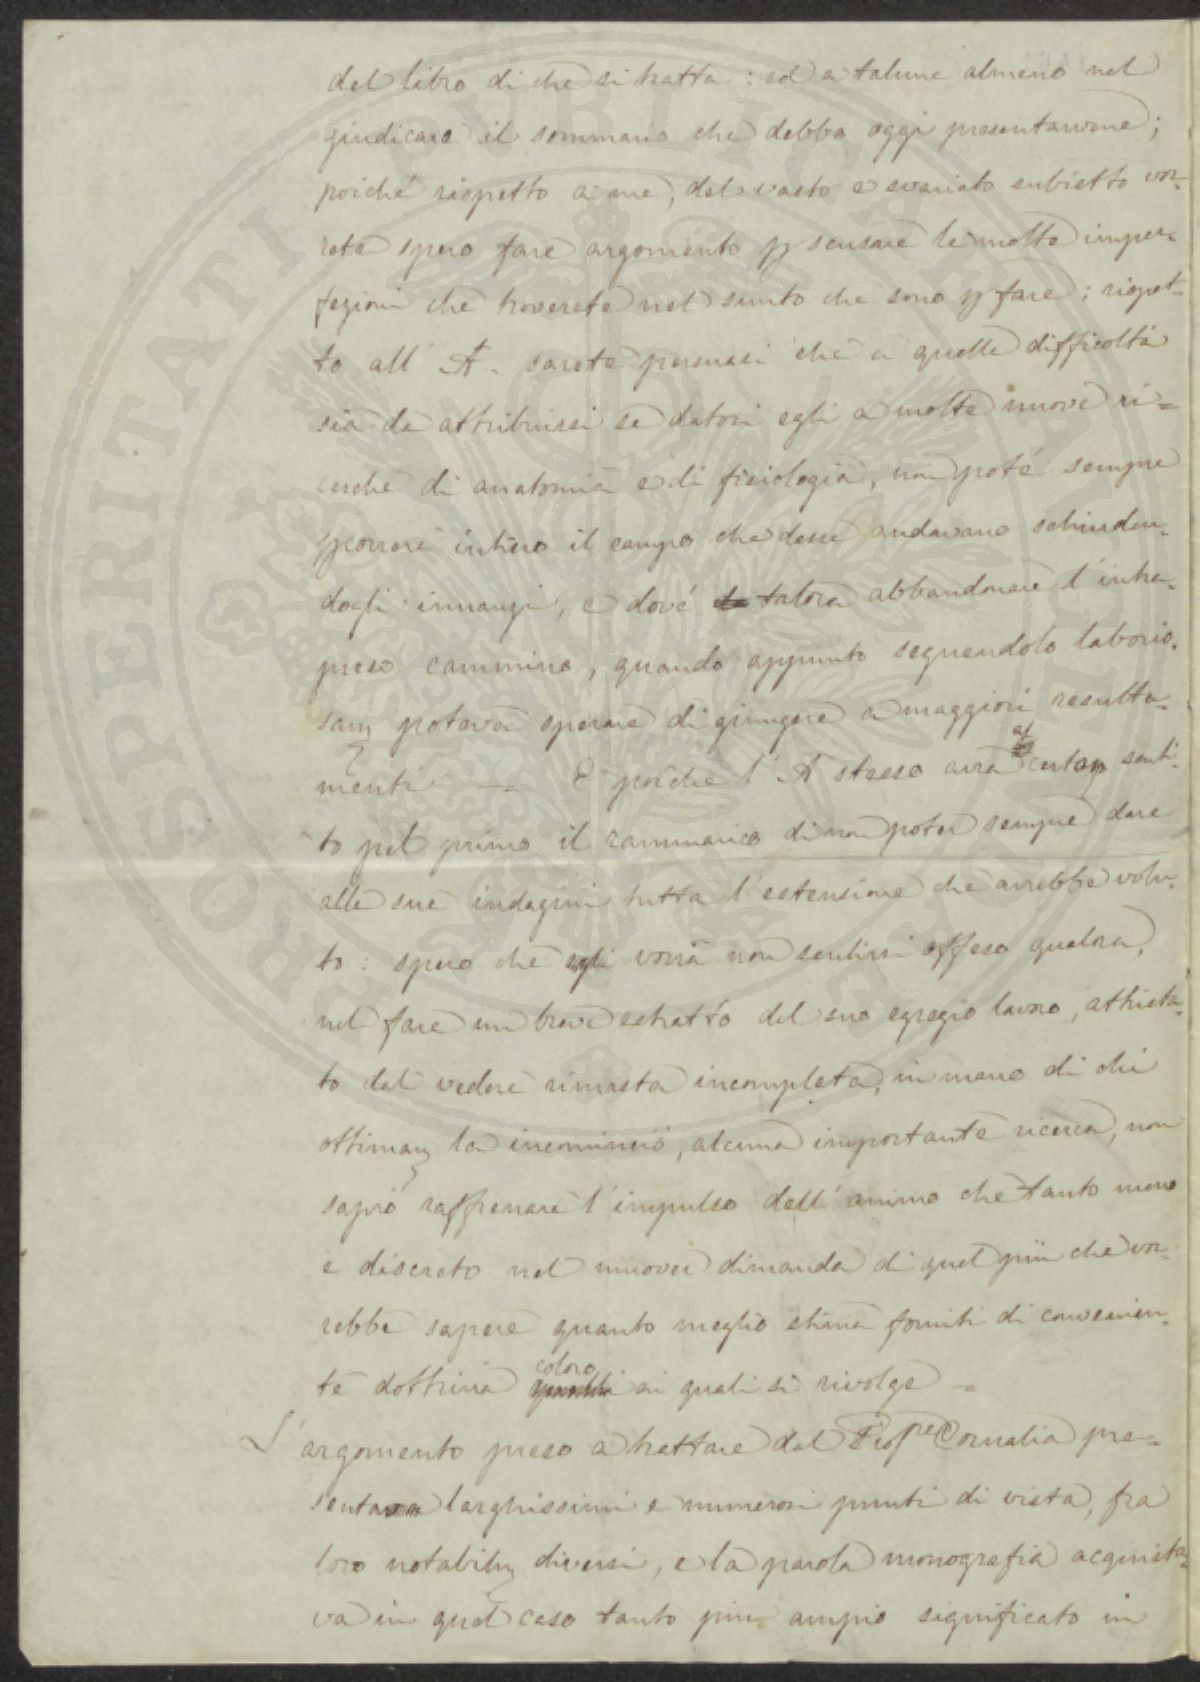 del libro di che si tratta: ed a talune almeno nel
giudicare il sommario che debbo oggi presentarvene;
poiché rispetto a me, del vasto e svariato subietto vor-
rete spero fare argomento p scusare le molte imper-
fezioni che troverete nel sunto che sono p fare; rispet-
to all' A. sarete persuasi che a quelle difficoltà
sia da attribuirsi se datosi egli a molte nuove ri=
cerche di anatomia e di fisiologia, non poté sempre
pcorrere intiero il campo che desse andavano schiuden-
dogli innanzi, e dové talora abbandonare l'intra-
preso cammino, quando appunto seguendolo laborio-
sam poteva sperare di giungere a maggiori resulta-
menti — E poiché l'A stesso avrà certam senti-
to pel primo il rammarico di non poter sempre dare
alle sue indagini tutta l'estensione che avrebbe volu-
to: spero che egli vorrà non sentirsi offeso qualora,
nel fare un breve estratto del suo egregio lavoro, attrista-
to dal vedere rimasta incompleta, in mano di chi
ottimam la incominciò, alcuna importante ricerca, non
saprò raffrenare l'impulso dell'animo che tanto meno
è discreto nel muover dimanda di quel più che vor-
rebbe sapere quanto meglio stima forniti di convenien-
te dottrina coloro ai quali si rivolge —
L'argomento preso a trattare dal Profre Cornalia pre-
senta larghissimi e numerosi punti di vista, fra
loro notabilm diversi, e la parola monografia acquista-
va in quel caso tanto più ampio significato in
PROSPERITATI PUBLICAE AUGENDAE